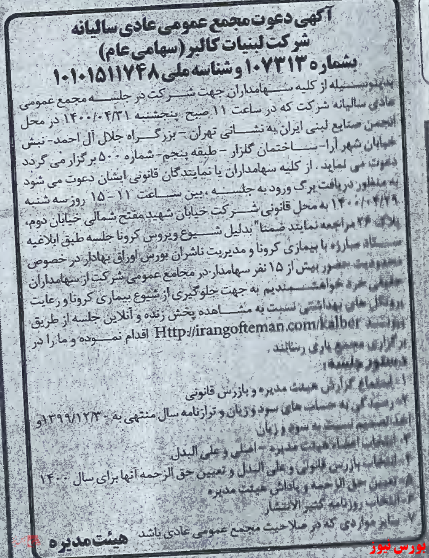 آگهی دعوت مجمع عمومی عادی سالیانه
شرکت لبنیات کالبر (سهامی عام)
بشماره ۱۰۷۳۱۳ و شناسه ملی ۱۰۱۰۱۵۱۱۷۴۸
بدینوسیله از کلیه سهامداران جهت شرکت در جلسه مجمع عمومی
عادی سالیانه شرکت که در ساعت ۱۱ صبح پنجشنبه ۱۴۰۰/۰۴/۳۱ در محل
انجمن صنایع لبنی ایران به نشانی تهران - بزرگراه جلال آل احمد- نبش
خیابان شهر آرا- ساختمان گلزار - طبقه پنجم - شماره ۵۰۰ برگزار می گردد
دعوت می نماید. از کلیه سهامداران یا نمایندگان قانونی ایشان دعوت می شود
به منظور دریافت برگ ورود به جلسه ، بین ساعت ۱۱ - ۱۵ روز سه شنبه
۱۴۰۰/۰۴/۲۹ به محل قانونی شرکت خیابان شهید مفتح شمالی خیابان دوم،
پلاک ۲۶ مراجعه نمایند ضمنا" بدلیل شیوع ویروس کرونا جلسه طبق ابلاغیه
ستاد مبارزه با بیماری کرونا و مدیریت ناشران بورس اوراق بهادار در خصوص
محدودیت حضور بیش از ۱۵ نفر سهامدار در مجامع عمومی شرکت از سهامداران
حقیقی خرد خواهشمندیم به جهت جلوگیری از شیوع بیماری کرونا و رعایت
پروتکل های بهداشتی نسبت به مشاهده پخش زنده و آنلاین جلسه از طریق
Http://irangofteman.com/kalber اقدام نموده و ما را در
برگزاری مجمع یاری رسانند .
دستور جلسه :
۱- استماع گزارش هیئت مدیره و بازرس قانونی
۲- رسیدگی به حساب های سود و زیان و ترازنامه سال منتهی به ۱۳۹۹/۱۲/۳۰ و
اخذ تصمیم نسبت به سود و زیان
۳- انتخاب اعضاء هیئت مدیره - اصلی و علی البدل
۴- انتخاب بازرس قانونی و علی البدل و تعیین حق الزحمه آنها برای سال ۱۴۰۰
تعیین حق الزحمه و پاداش هیئت مدیره
انتخاب روزنامه کثیر الانتشار
سایر مواردی که در صلاحیت مجمع عمومی عادی باشد
هیئت مدیره
بورس نیوز